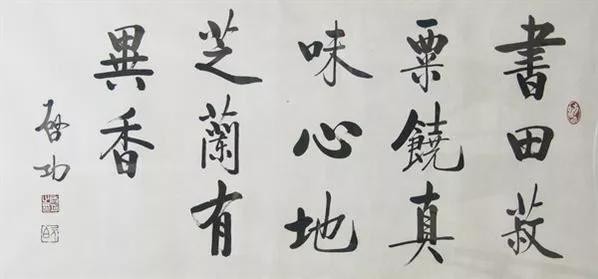 書田菽
粟饒真
味心地
芝蘭有
異香
啟功